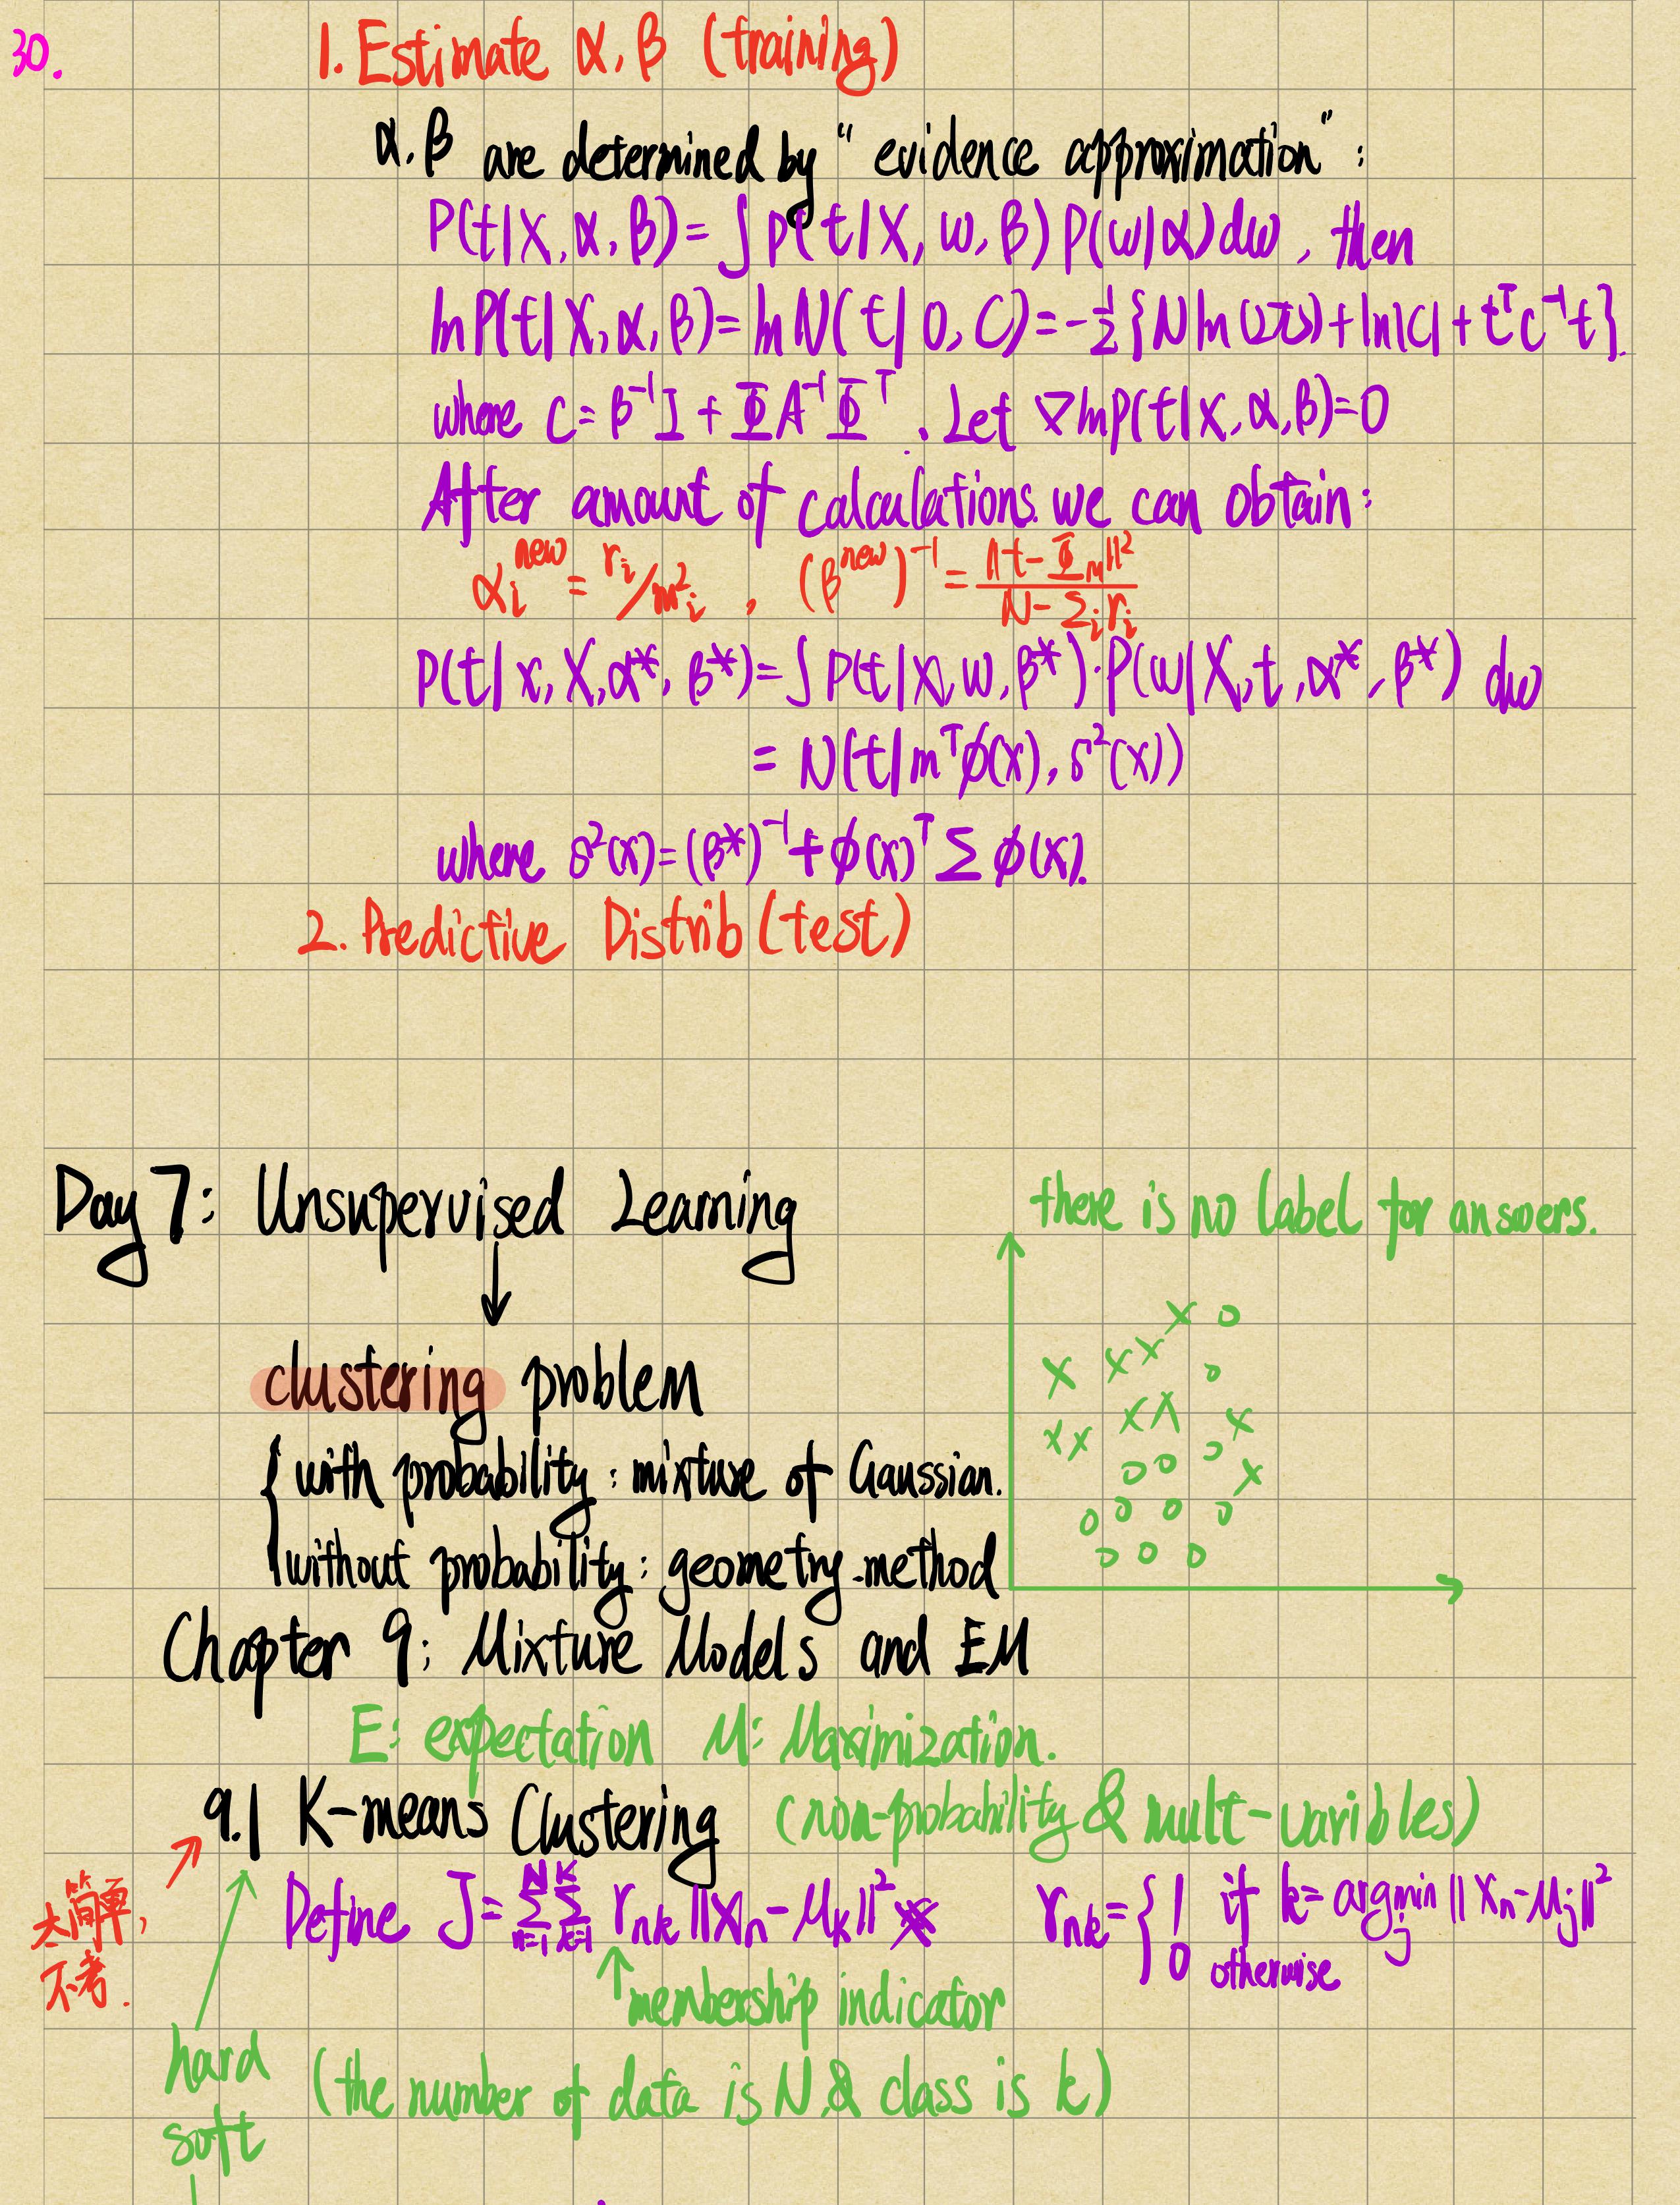 30.
1. Estimate α, β (training)
α, β are determined by "evidence approximation":
P(t|X, α, β) = ∫ p(t|X, w, β) P(w|α) dw, then
ln P(t|X, α, β) = ln N(t|0, C) = -½ {N ln(2π) + ln|C| + tᵀC⁻¹t}.
where C = β⁻¹I + ΦA⁻¹Φᵀ. Let ∇ln p(t|X, α, β) = 0
After amount of calculations. we can obtain:
αᵢ^new = rᵢ/mᵢ², (β^new)⁻¹ = ‖t - Φ_M‖² / (N - Σᵢ rᵢ)
P(t|x, X, α*, β*) = ∫ P(t|x, w, β*)·P(w|X, t, α*, β*) dw
= N(t|mᵀφ(x), δ²(x))
where δ²(x) = (β*)⁻¹ + φ(x)ᵀ Σ φ(x).
2. Predictive Distrib (test)
Day 7: Unsupervised Learning
there is no label for answers.
clustering problem
with probability: mixture of Gaussian.
without probability: geometry-method
Chapter 9: Mixture Models and EM
E: expectation M: Maximization.
9.1 K-means Clustering (non-probability & mult-varibles)
太简单,
不考.
Define J = Σₙ₌₁ᴺ Σₖ₌₁ᴷ rₙₖ ‖xₙ - μₖ‖² rₙₖ = { 1 if k = argminⱼ ‖xₙ - μⱼ‖²
0 otherwise
↑ membership indicator
hard (the number of data is N, & class is k)
soft